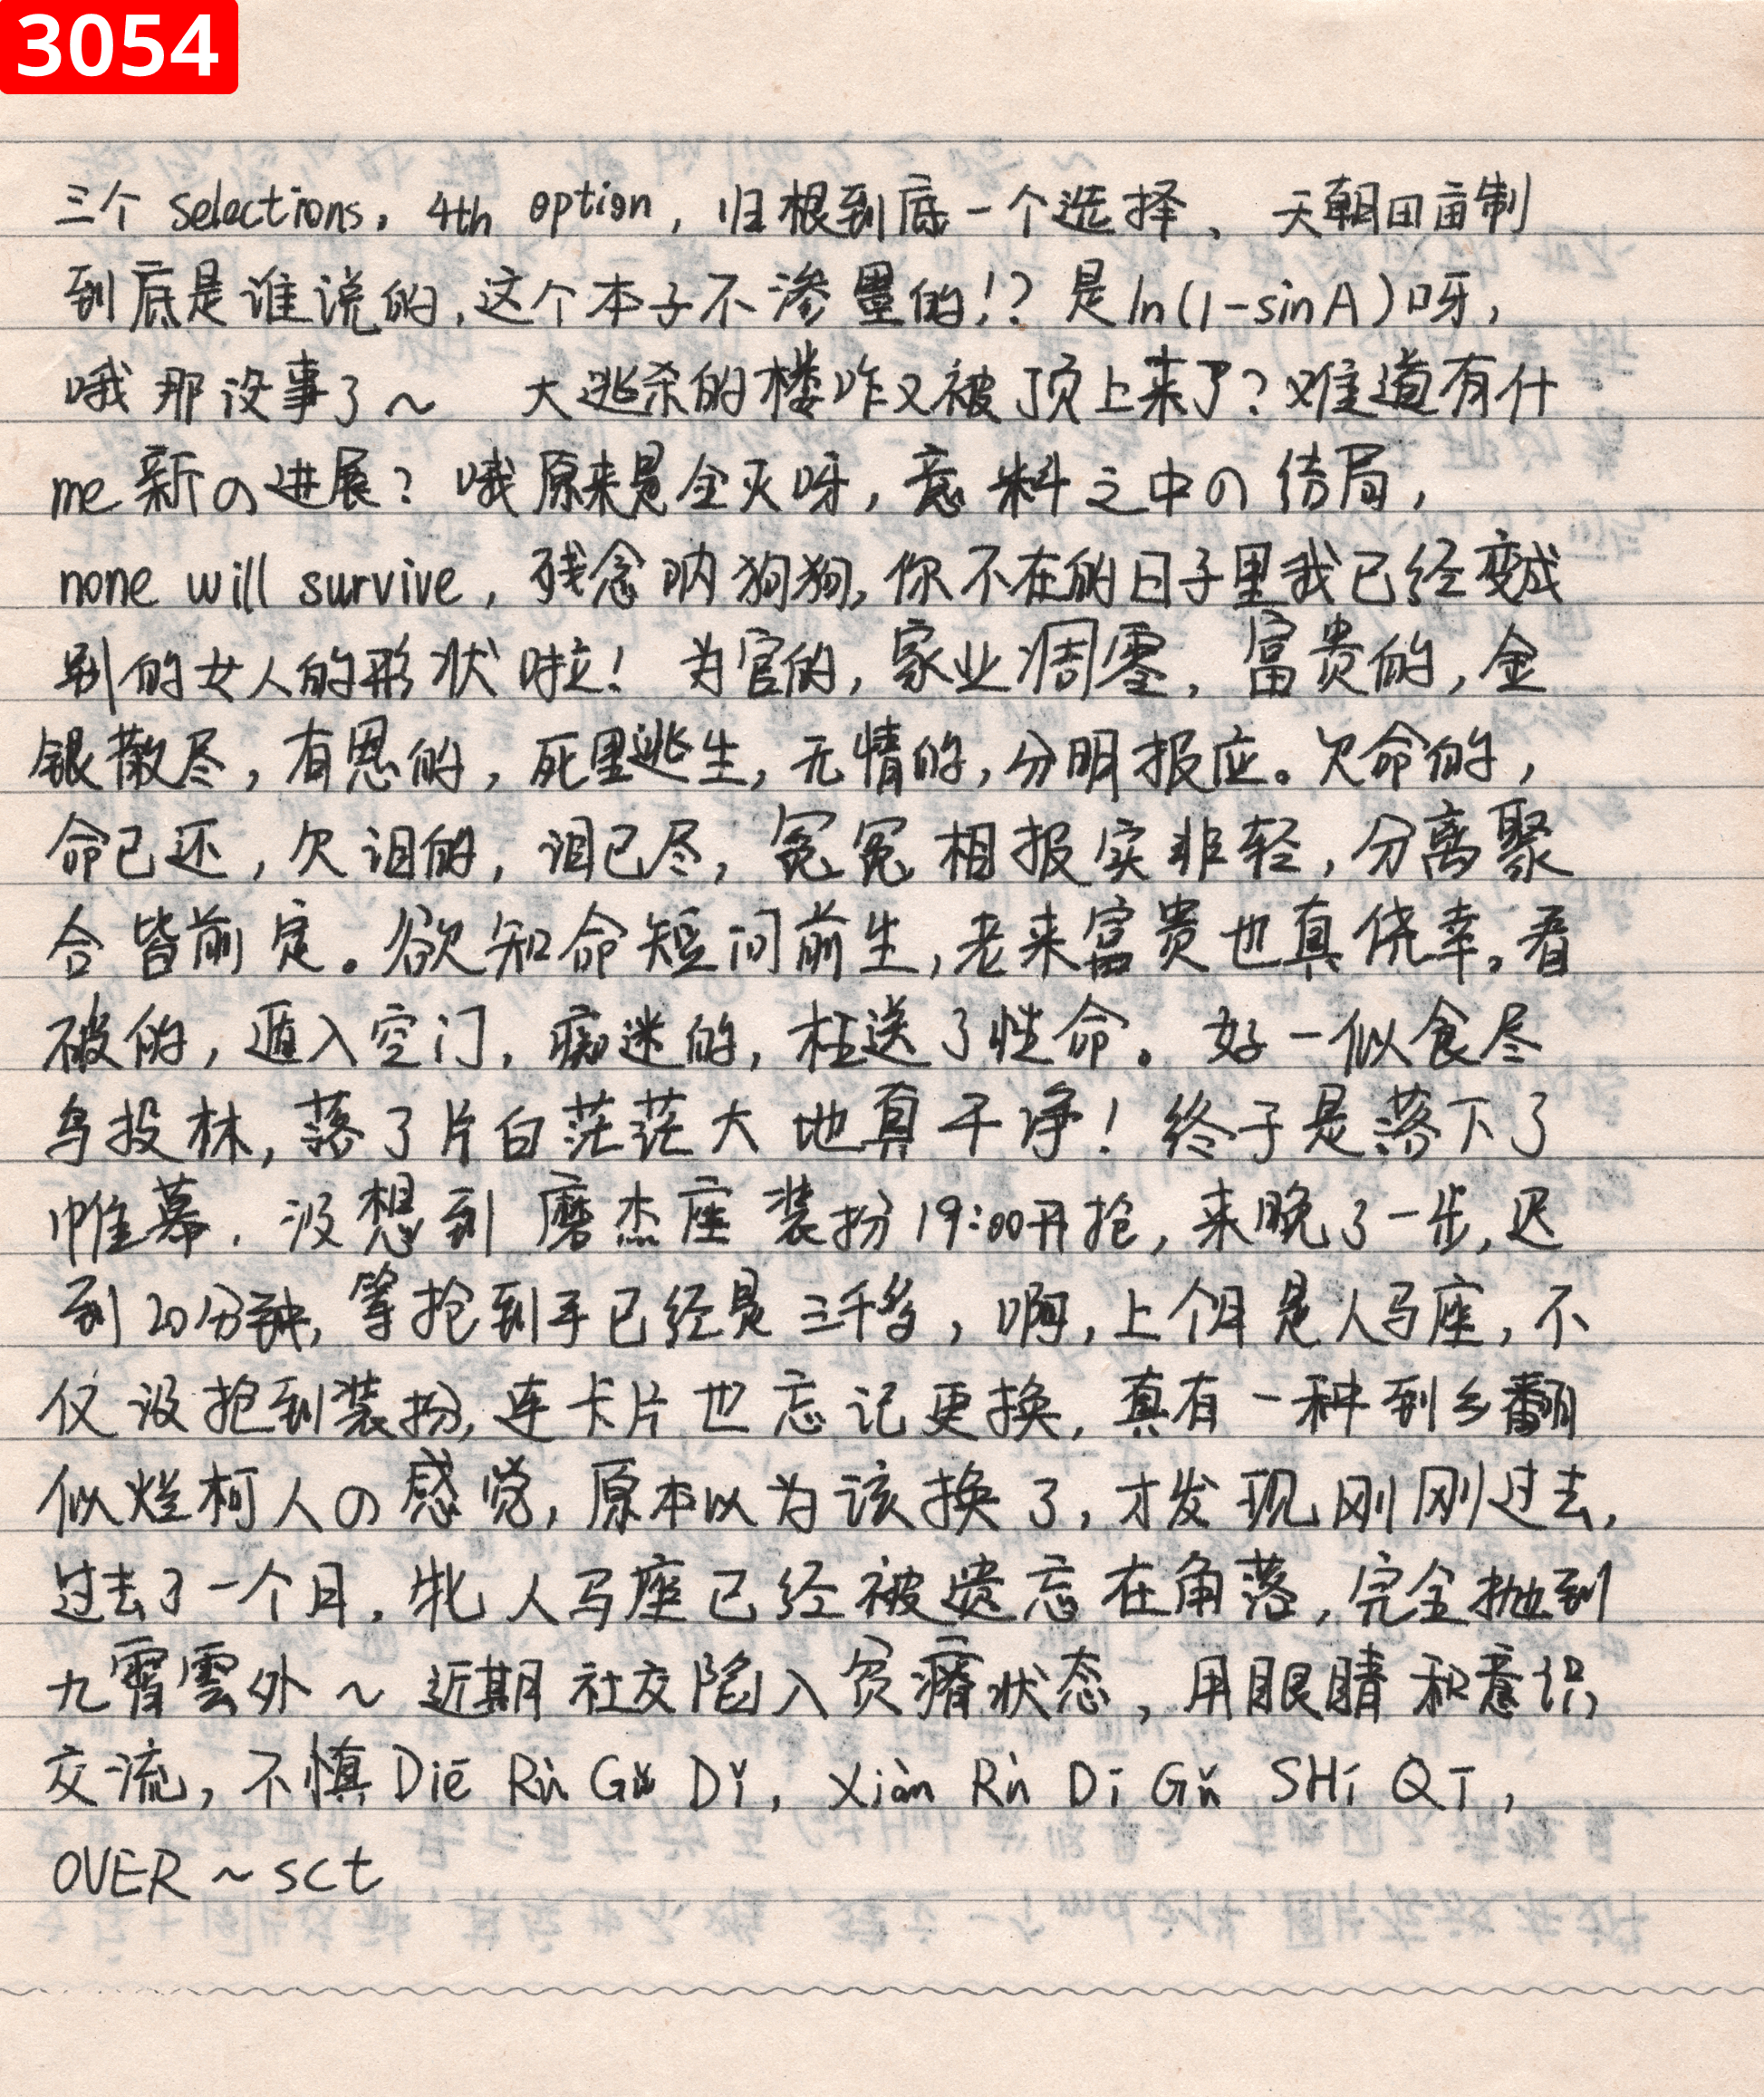 3054
三个 selections, 4th option, 归根到底一个选择、天朝田亩制
到底是谁说的,这个本子不渗墨的!? 是ln(1-sinA)呀,
哦那没事了~ 大逃杀的楼咋又被顶上来了?难道有什
me新の进展? 哦原来是全灭呀,意料之中の结局,
none will survive, 残念呐狗狗,你不在的日子里我已经变成
别的女人的形状啦! 为官的,家业凋零,富贵的,金
银散尽,有恩的,死里逃生,无情的,分明报应。欠命的,
命已还,欠泪的,泪已尽,冤冤相报实非轻,分离聚
合皆前定。欲知命短问前生,老来富贵也真侥幸。看
破的,遁入空门,痴迷的,枉送了性命。好一似食尽
鸟投林,落了片白茫茫大地真干净! 终于是落下了
帷幕. 没想到磨杰座装扮19:00开抢,来晚了一步,迟
到20分钟,等抢到手已经是三千多,啊,上个月是人马座,不
仅没抢到装扮,连卡片也忘记更换,真有一种到乡翻
似烂柯人の感觉,原本以为该换了,才发现刚刚过去,
过去了一个月. 牝人马座已经被遗忘在角落,完全抛到
九霄雲外~ 近期社交陷入贫瘠状态,用眼睛和意识
交流,不慎Diē Rù Gǔ Dǐ, Xiàn Rù Dī Gǔ SHí QI,
OVER ~ sct